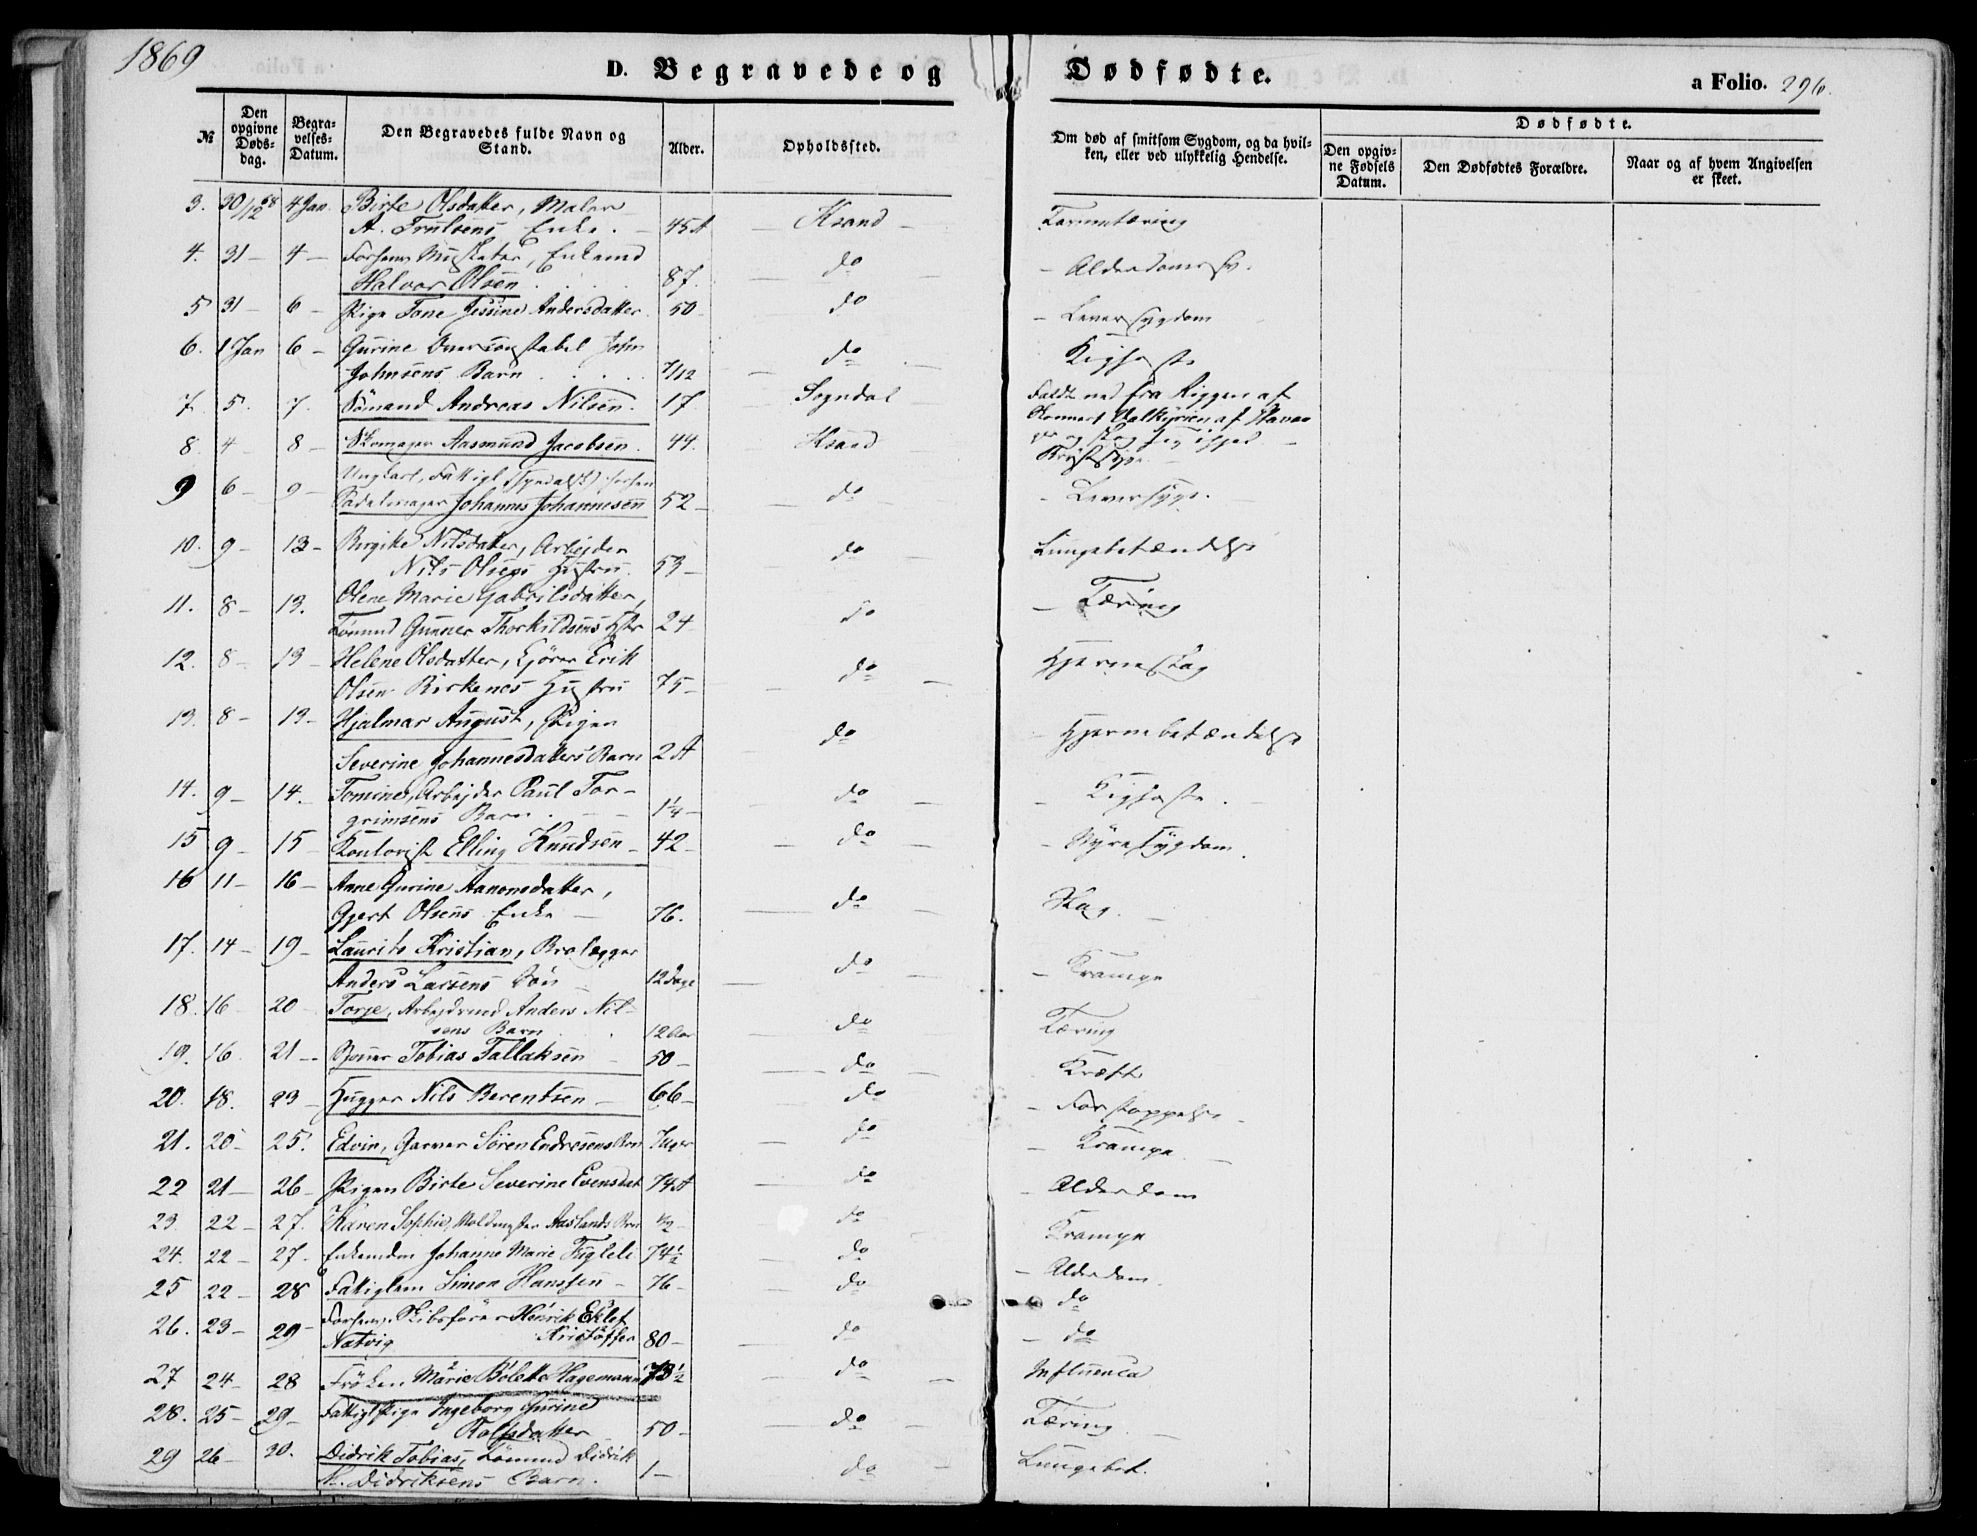 1869
D. Begravede og Dødfødte.
a Folio. 296.
№
Den opgivne Døds-dag.
Begra-velses-Datum.
Den Begravedes fulde Navn og Stand.
Alder.
Opholdssted.
Om død af smitsom Sygdom, og da hvil-ken, eller ved ulykkelig Hendelse.
Dødfødte.
Den opgiv-ne Fødsels Datum.
Den Dødfødtes Forældre.
Naar og af hvem Angivelsen er skeet.
3. 30/12 68 4 Jan. Birte Olsdatter, Maler
A. Trulsens Enke. 45 A Ksand Tarmetæring
4. 31 - 4 - Forhenv. Enkemd
Halvor Olsen 87. do Alderdomssv.
5 31 - 6 - Pige Tone Jessine Andersdatter. 50 - do - Leversygdom
6. 1 Jan 6 - Gurine Overconstabel John
Johnsens Barn 7/12 do Kighoste
7. 5. 7. Sömand Andreas Nilsen. 17 Sogndal Faldt ned fra Riggen af
Skonnert Valkyrien af Stavan
ger og slog sig ihjel
8. 4 8 - Skomager Aasmund Jacobsen. 44. Ksand Brystsyge
9 6 - 9 - Ungkarl, Fattigl. (spedalsk) forhen
Sadelmager Johannes Johannesen 52 - do - Leversyge.
10. 9 - 13 - Birgitte Nilsdatter, Arbejder
Nils Olsens Hustru. 53 - do Lungebetændelse
11. 8 - 13. Olene Marie Gabrilsdatter,
Tömmd Gunner Thorkildsens Hstr 24 do - Tæring
12. 8 - 13 - Helene Olsdatter, Kjörer Erik
Olsen Birkenes Hustru 75 - do Hjerneslag
13. 8 - 13 - Hjalmar August, Pigen
Severine Johannesdatters Barn 2 A do Hjernebetændelse
14. 9 - 14. Tomine, Arbejder Paul Tor-
grimsens Barn. 1 1/4 - do - Kighoste.
15 9 - 15 - Kontorist Elling Knudsen - 42 - do - Nyresygdom.
16 11 - 16 - Anne Gurine Aanonsdatter,
Gjert Olsens Enke 76. do Slag.
17. 14 - 19 - Laurits Kristian, Brolægger
Anders Larsens Sön 12 Dage do - Krampe
18. 16 20 - Torje, Arbejdsmd Anders Nil-
sens Barn 12 Aar do Tæring
19. 16. 21 - Tobias Tallaksen 50 - do Kræft
20. 18. 23 - Hugger Nils Berentsen - 66 - do - Forstoppelse
21. 20 - 25. Edvin, Garver Sören Endresens Brn do - Krampe
22 21 - 26 - Pigen Birte Severine Evensdat 74 A do - Alderdom
23. 22 - 27. Karen Sophie, Aaslands Brn 1/2 - do Krampe
24. 22 - 27. Enkemdm Johanne Marie Fugleli 74 1/2 do - Alderdom.
25 22 - 28 Fattiglem Simon Hanssen - 76 - do do
26. 23 - 29 - Forhenv. Skibsförer Henrik Eklef
Natvig Kristoffer 80 - do - do
27 24 - 28 Fröken Marie Bolette Hagemann 73 1/2 do Influenca
28. 25 - 29 - Fattigl. Pige Ingeborg Gurine
Rolfsdatter 50 - do Tæring
29 26 - 30. Didrik Tobias, Tömmd Didrik
M. Didriksens Barn. 1 - do Lungebet.